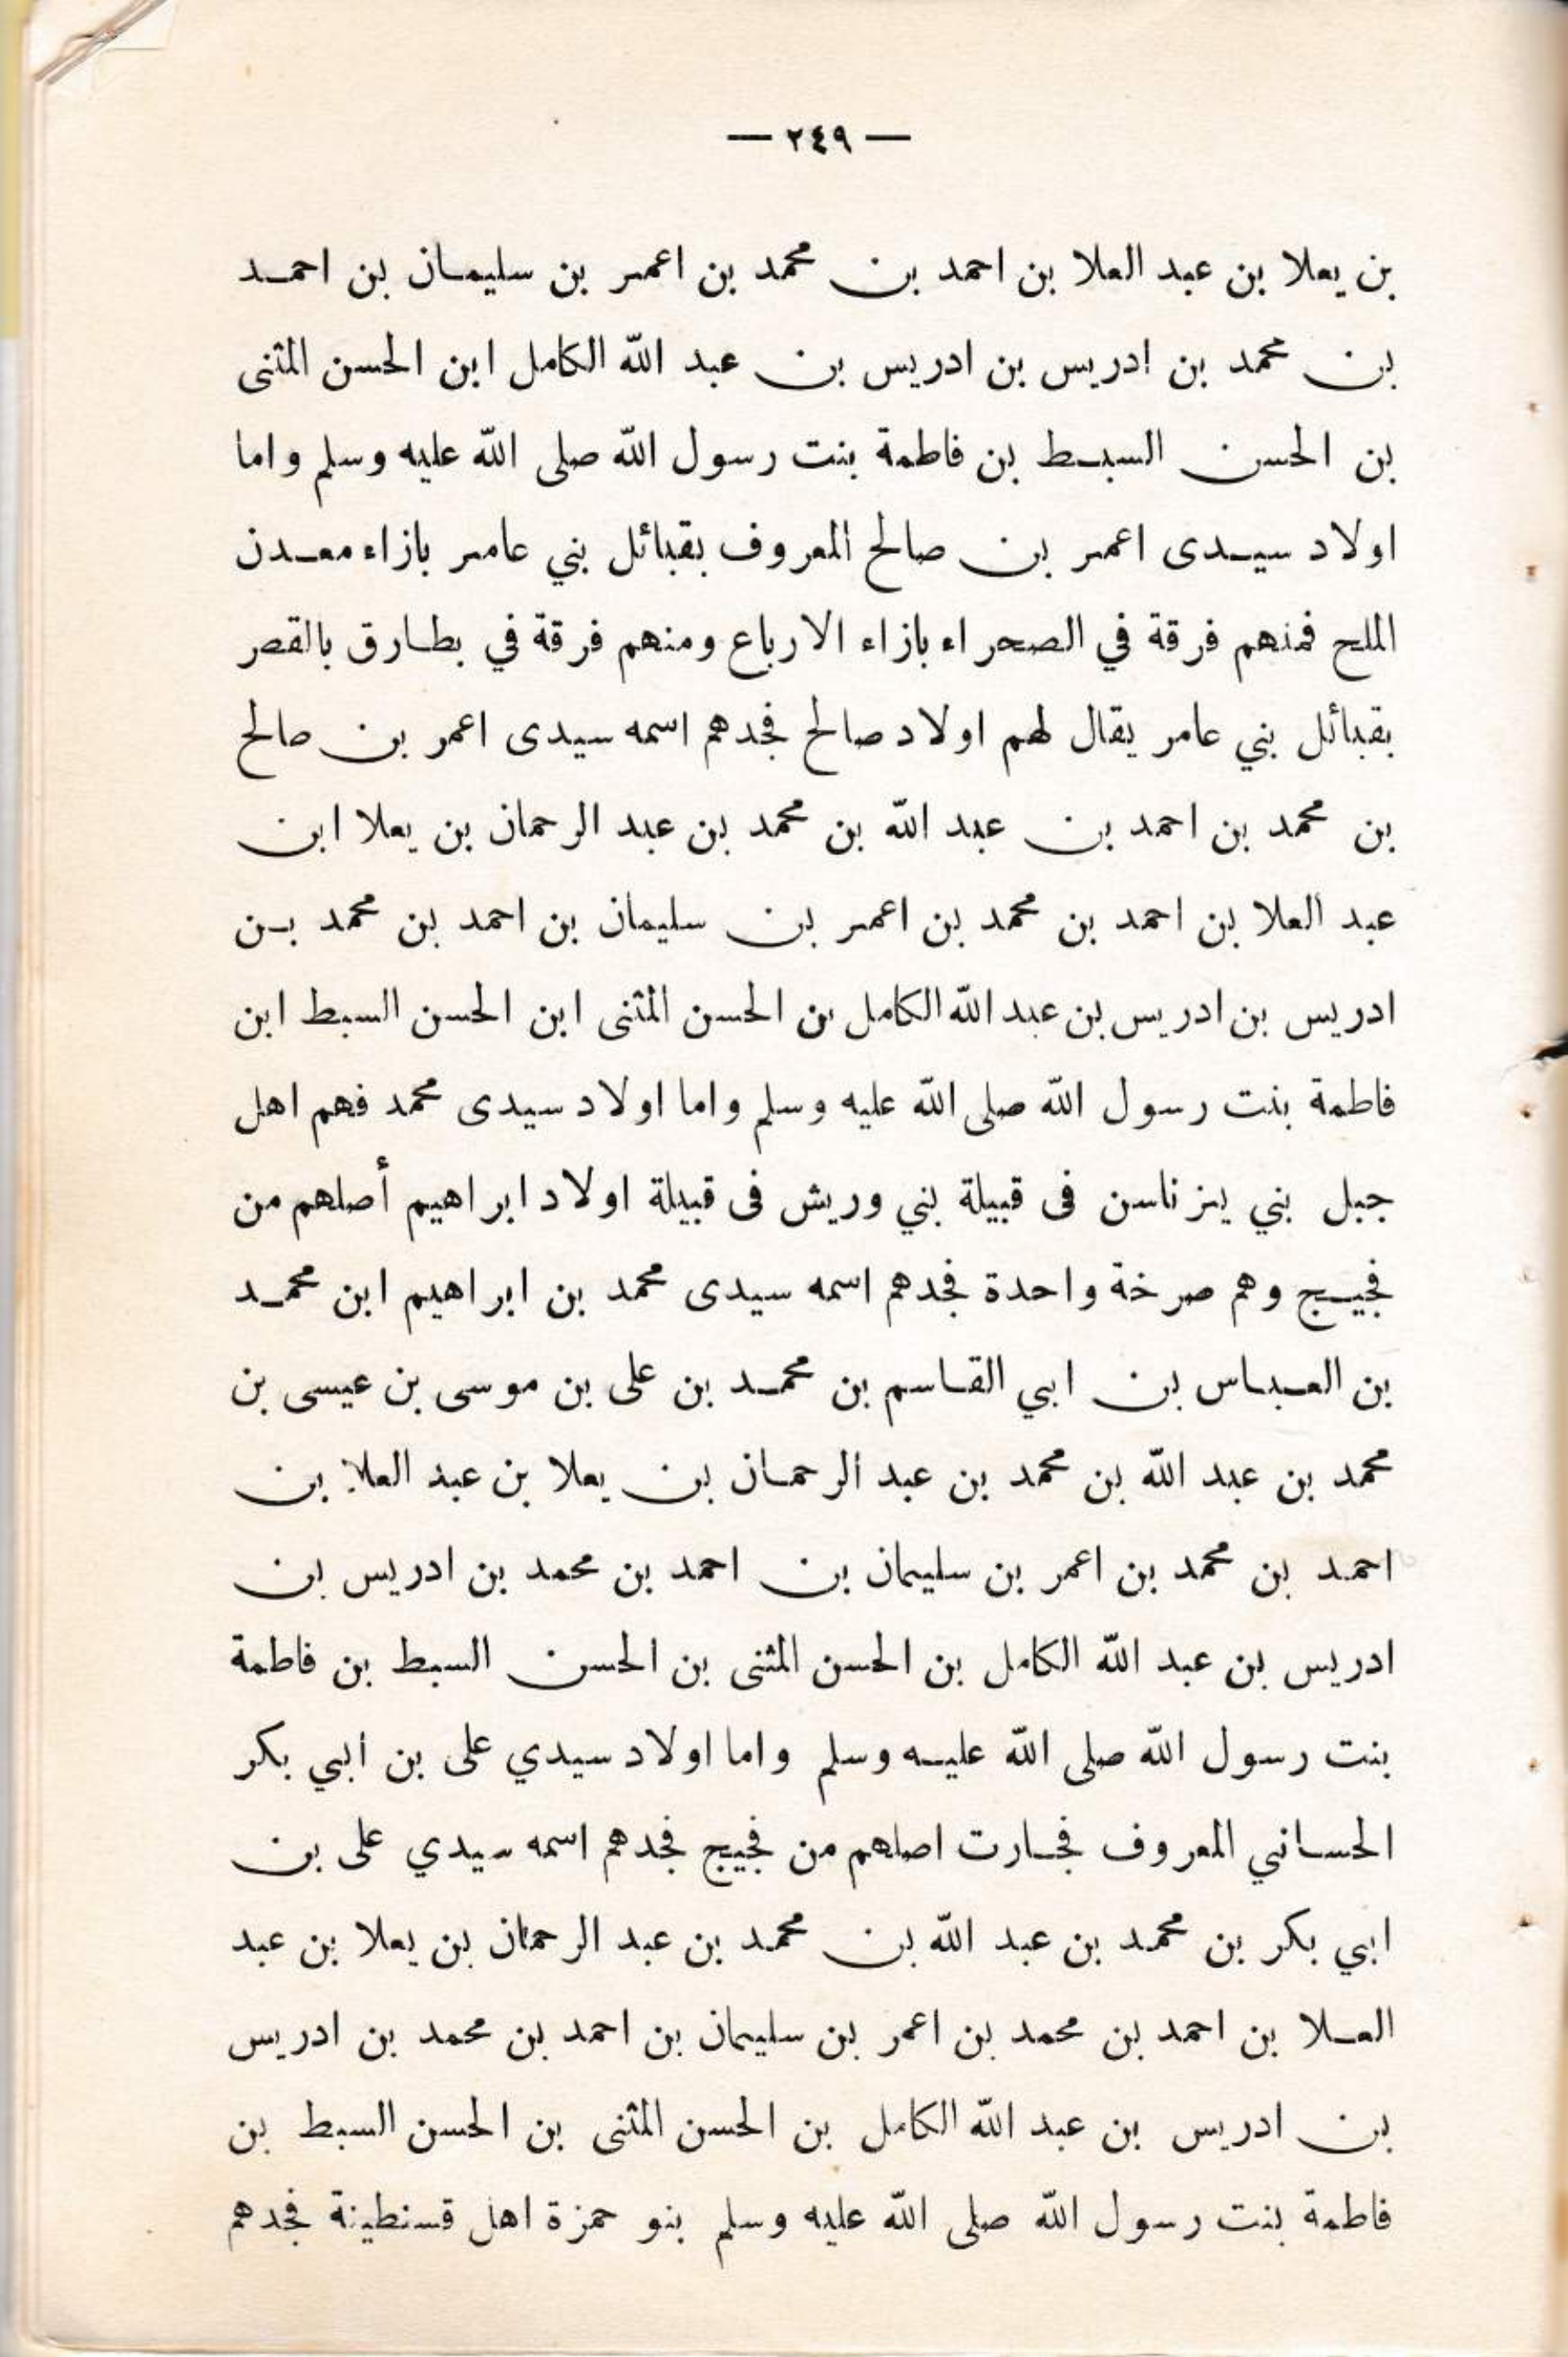 — ٢٤٩ —
بن يعلا بن عبد العلا بن احمد بن محمد بن اعمر بن سليمان بن احمد
بن محمد بن ادريس بن ادريس بن عبد الله الكامل ابن الحسن المثنى
بن الحسن السبط بن فاطمة بنت رسول الله صلى الله عليه وسلم واما
اولاد سيدى اعمر بن صالح المعروف بقبائل بني عامر بازاء معدن
الملح فمنهم فرقة في الصحراء بازاء الارباع ومنهم فرقة في بطارق بالقصر
بقبائل بني عامر يقال لهم اولاد صالح فجدهم اسمه سيدى اعمر بن صالح
بن محمد بن احمد بن عبد الله بن محمد بن عبد الرحمان بن يعلا ابن
عبد العلا بن احمد بن محمد بن اعمر بن سليمان بن احمد بن محمد بن
ادريس بن ادريس بن عبد الله الكامل بن الحسن المثنى ابن الحسن السبط ابن
فاطمة بنت رسول الله صلى الله عليه وسلم واما اولاد سيدى محمد فهم اهل
جبل بني يزناسن فى قبيلة بني وريش فى قبيلة اولاد ابراهيم أصلهم من
فجيج وهم صرخة واحدة فجدهم اسمه سيدى محمد بن ابراهيم ابن محمد
بن العباس بن ابي القاسم بن محمد بن على بن موسى بن عيسى بن
محمد بن عبد الله بن محمد بن عبد الرحمان بن يعلا بن عبد العلا بن
احمد بن محمد بن اعمر بن سليمان بن احمد بن محمد بن ادريس بن
ادريس بن عبد الله الكامل بن الحسن المثنى بن الحسن السبط بن فاطمة
بنت رسول الله صلى الله عليه وسلم واما اولاد سيدي على بن ابي بكر
الحساني المعروف فجارت اصلهم من فجيج فجدهم اسمه سيدي على بن
ابي بكر بن محمد بن عبد الله بن محمد بن عبد الرحمان بن يعلا بن عبد
العلا بن احمد بن محمد بن اعمر بن سليمان بن احمد بن محمد بن ادريس
بن ادريس بن عبد الله الكامل بن الحسن المثنى بن الحسن السبط بن
فاطمة بنت رسول الله صلى الله عليه وسلم بنو حمزة اهل قسنطينة فجدهم